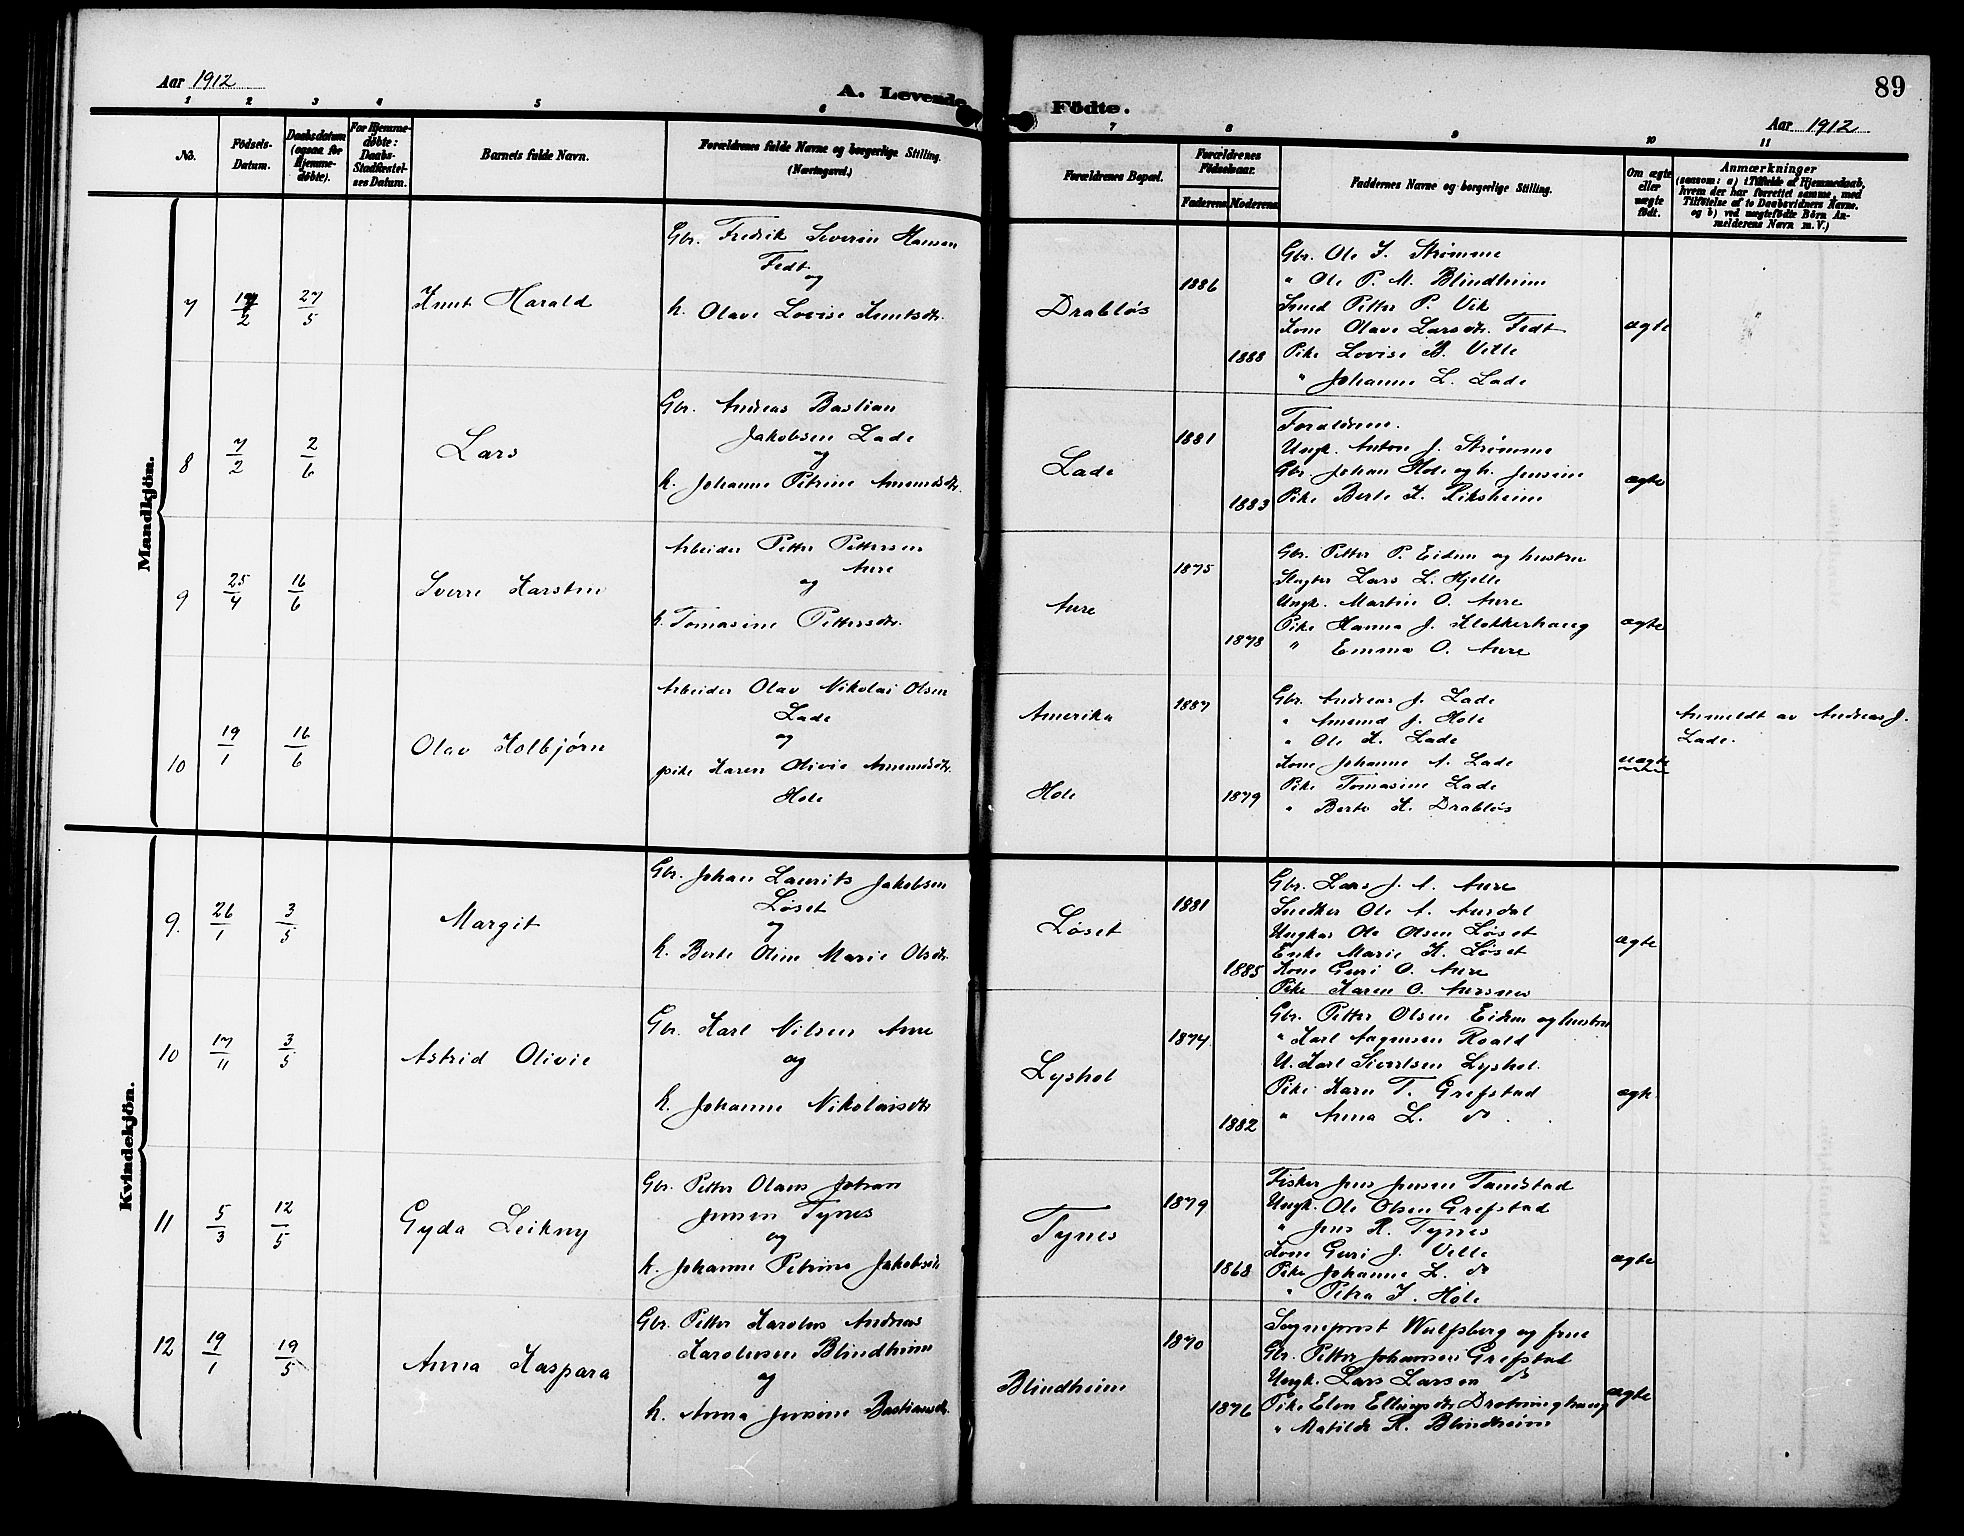 Aar 1912
A. Levende
1 2 3 4 5 6
No.
Födsels-
Datum.
Daabsdatum
(ogsaa for
Hjemme-
døbte).
For Hjemme-
døbte:
Daabs-
Stadfæstel-
ses Datum.
Barnets fulde Navn.
Forældrenes fulde Navne og borgerlige Stilling.
(Næringsvei.)
Mandkjön.
7
2
27/5
Knut Harald
Gbr. Fredrik Severin Hansen
Fedt
og
h. Olave Lovise Knutsdtr.
8
7/2
2/6
Lars
Gbr. Andreas Bastian
Jakobsen Lade
og
h. Johanne Petrine Amundsdtr.
9
25/4
16/6
Sverre Karsten
Arbeider Petter Pettersen
Aure
og
h. Tomasine Pettersdtr.
10
19/1
16/6
Olav Kolbjørn
Arbeider Olav Nikolai Olsen
Lade
og
pike Karen Olivie Amundsdtr.
Hole
Kvindekjön.
9.
26/1
3/5
Margit
Gbr. Johan Laurits Jakobsen
Løset
og
h. Berte Oline Marie Olsdtr.
10
17/11
3/5
Astrid Olivie
Gbr. Karl Nilsen Aure
og
h. Johanne Nikolaisdtr
11
5/3
12/5
Gyda Leikny
Gbr. Petter Olaus Johan
Jensen Tynes
og
h. Johanne Petrine Jakobsdtr
12
19/1
19/5
Anna Kaspara
Gbr. Petter Karolus Andreas
Karolusen Blindheim
og
h. Anna Jensine Bastiansdtr.
Födte.
89
Aar 1912
7 8 9 10 11
Forældrenes Bopæl.
Forældrenes
Födselsaar.
Faderens. Moderens.
Faddernes Navne og borgerlige Stilling.
Om ægte
eller
uægte
födt.
Anmærkninger
(saasom: a) i Tilfælde af Hjemmedaab,
hvem der har forrettet samme, med
Tilföielse af to Daabsvidners Navne,
og b) ved uægtefödte Börn An-
melderens Navn m.V.)
Drabløs
1886
1888
Gbr. Ole I. Strømme
" Ole P. M. Blindheim
Smed Petter P. Vik
Kone Olave Larsdtr. Fedt
Pike Lovise B. Velle
" Johanne L. Lade
ægte
Lade
1881
1883
Forældrene.
Ungk. Anton J. Strømme
Gbr. Johan Hole og h. Jensine
Pike Berte K. Riksheim
ægte
Aure
1875
1878
Gbr. Petter P. Eidem og hustru
Slagter Lars L. Hjelle
Ungk. Martin O. Aure
Pike Hanna J. Klokkerhaug
" Emma O. Aure
ægte
Amerika
Hole
1887
1879
Gbr. Andreas J. Lade
" Amund J. Hole
" Ole K. Lade
Kone Johanne A. Lade
Pike Tomasine Lade
" Berte K. Drabløs
uægte
Anmeldt av Andreas J.
Lade.
Løset
1881
1885
Gbr. Lars J. A. Aure
Snedker Ole A. Aurdal
Ungkar Ole Olsen Løset
Enke Marie K. Løset
Kone Guri O. Aure
Pike Karen O. Aursnes
ægte
Lyshol
1874
1882
Gbr. Petter Olsen Eidem og hustru
" Karl Aagensen Roald
U. Karl Sivertsen Lyshol.
Pike Karn T. Grefstad
" Anna L. do
ægte
Tynes
1879
1868
Fisker Jens Jensen Tandstad
Ungk. Ole Olsen Grefstad
" Jens R. Tynes
Kone Guri J. Velle
Pike Johanne L. do
" Petra I. Hole
ægte
Blindheim
1870
1876
Sogneprest Wulfsberg og frue
Gbr. Petter Johannsen Grefstad
Ungk. Lars Larsen do
Pike Elen Ellingsdtr Drotninghaug
" Matilde R. Blindheim
ægte